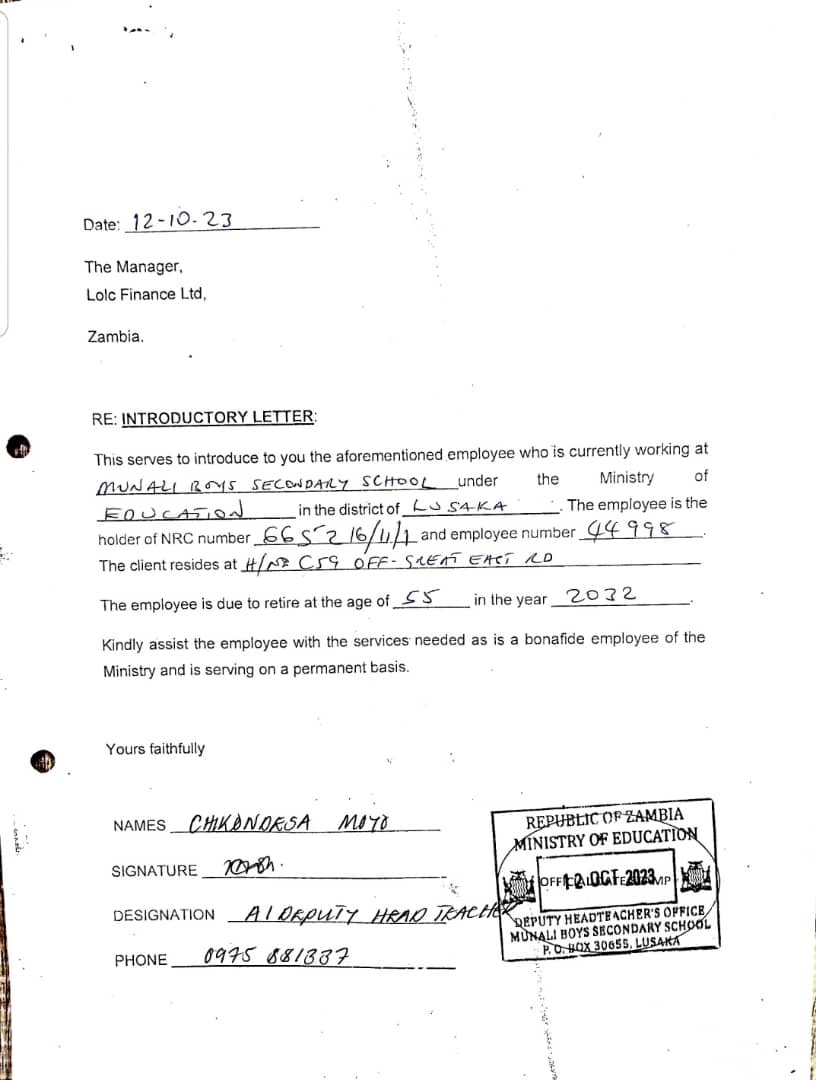 Date: 12-10-23
The Manager,
Lolc Finance Ltd,
Zambia.
RE: INTRODUCTORY LETTER:
This serves to introduce to you the aforementioned employee who is currently working at
MUNALI BOYS SECONDARY SCHOOL under the Ministry of
EDUCATION in the district of LUSAKA. The employee is the
holder of NRC number 665216/11/1 and employee number 44998.
The client resides at H/NO C59 OFF- GREAT EAST RD
The employee is due to retire at the age of 55 in the year 2032.
Kindly assist the employee with the services needed as is a bonafide employee of the
Ministry and is serving on a permanent basis.
Yours faithfully
NAMES CHIKONDESA MOYO
SIGNATURE
DESIGNATION A/DEPUTY HEAD TEACHER
PHONE 0975 881337
REPUBLIC OF ZAMBIA
MINISTRY OF EDUCATION
12 OCT 2023
DEPUTY HEADTEACHER'S OFFICE
MUNALI BOYS SECONDARY SCHOOL
P. O. BOX 30655, LUSAKA